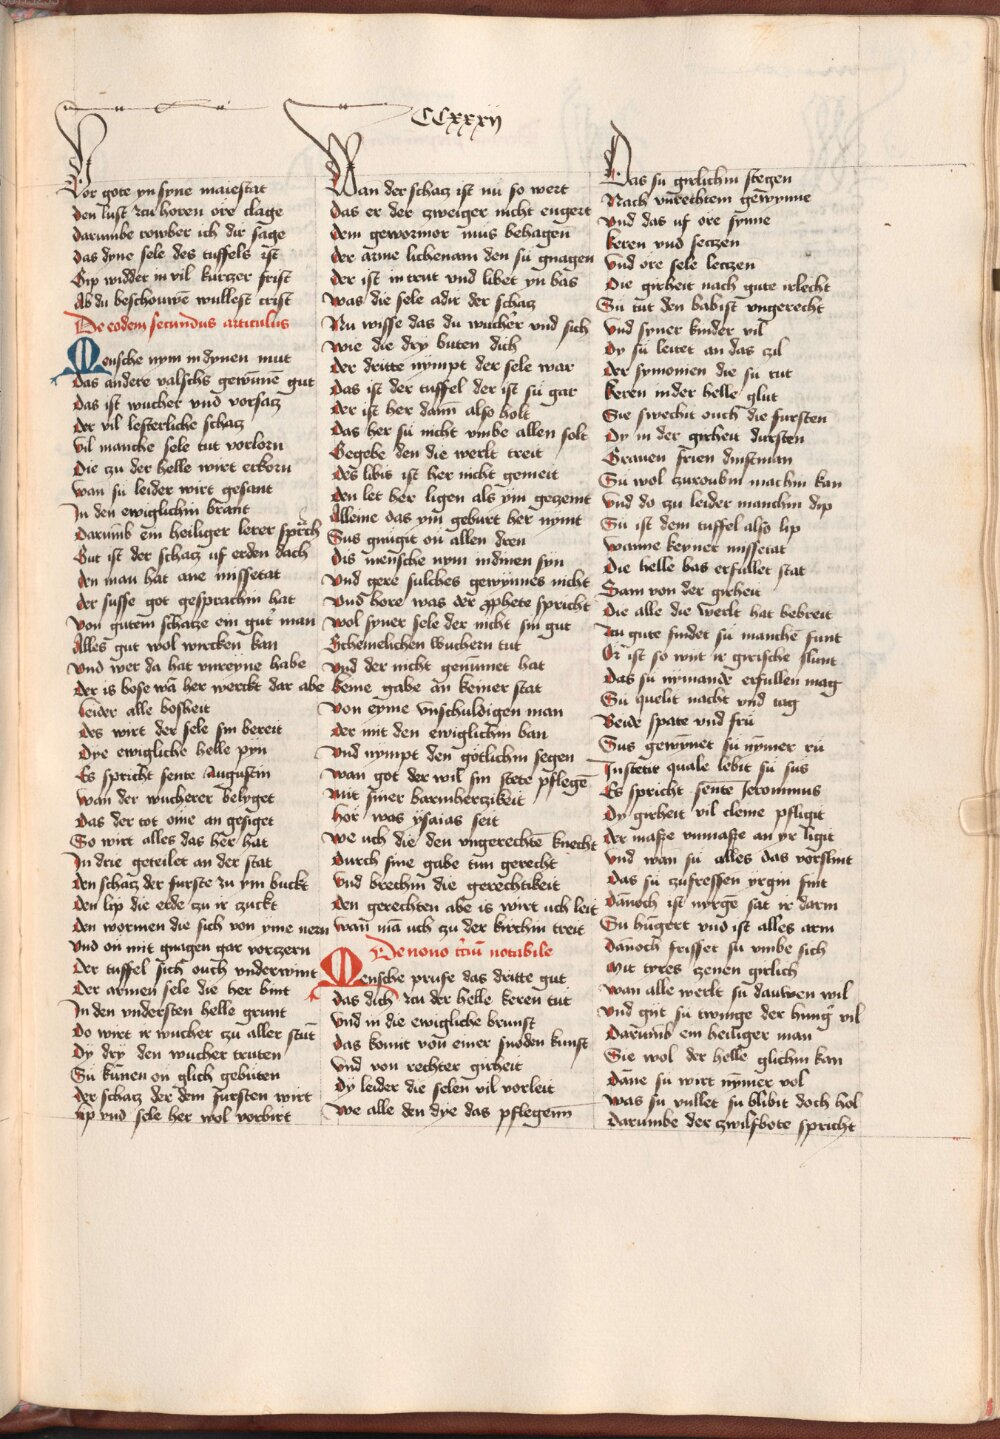 CCxxxij
Vor gote yn syne maiestat
Den lust zcu horen ore clage
Darumbe towber ich dir sage
Das dyne sele des tuffels ist
Gip widder in vil kurczer frist
Ab du beschouwē wullest crist
De eodem secundus articulus
Mensche nym in dynen mut
Das andere valschs gewūnē gut
Das ist wucher vnd vorsacz
Der vil lesterliche schacz
Vil manche sele tut vorlorn
Die zu der helle wirt erkorn
Wan su leider wirt gesant
In den ewiglichin brant
Darumb ein heiliger lerer sprch
Gut ist der schacz uf erden dach
Den man hat ane missetat
Der susse got gesprachin hat
Von gutem schatze ein gut man
Alles gut wol wircken kan
Vnd wer da hat vnreyne habe
Der is bose wā her werckt dar abe
Leider alle bosheit
Des wirt der sele sin bereit
Dye ewigliche helle pyn
Es spricht sente Augustin
Wan der wucherer belyget
Das der tot ome an gesiget
So wirt alles das her hat
In drie geteilet an der stat
Den schacz der furste zu ym buckt
Den lip die erde zu ir zuckt
Den wormen die sich von yme nern
Vnd on mit gnagen gar vorczern
Der tuffel sich ouch vnderwint
Der armen sele die her bint
In den vndersten helle grunt
Do wirt ir wucher zu aller stūt
Dy dry den wucher truten
Su kūnen on glich gebuten
Der schacz der dem fursten wirt
Lip vnd sele her wol vorbirt
Wan der schacz ist nu so wert
Das er der zweiger nicht engert
Dem gewormor mus behagen
Der arme lichenam den su gnagen
Der ist in trut vnd libet yn bas
Was die sele adir der schacz
Nu wisse das du wucher vnd sich
Wie die dry buten dich
Der dritte nympt der sele war
Das ist der tuffel der ist su gar
Der ist her dann also holt
Das her su nicht vmbe allen solt
Gegebe den die werlt treit
Des libis ist her nicht gemeit
Den let her ligen als ym geczemt
Alleine das ym geburt her nymt
Sus gnugit on allen dren
Dis mensche nym in dinen syn
Vnd gere sulches gewynnes nicht
Vnd hore was der pphete spricht
Wol syner sele der nicht sin gut
Schemelichen Wuchern tut
Vnd der nicht genūmet hat
Keine gabe an keiner stat
Von eyme vnschuldigen man
Der mit den ewiglichin ban
Vnd nympt den gotlichin segen
Wan got der wil sin stete pflegē
Mit siner barmherczikeit
Hor was ysaias seit
We uch die den vngerechtē knecht
Durch sine gabe tun gerecht
Vnd brechin die gerechtikeit
Den gerechten abe is wirt uch leit
Wan mā uch zu der kirchin treit
De nono tciū notabile
Mensche prufe das dritte gut
Das dich zcu der helle keren tut
Vnd in die ewigliche brunst
Das komt von einer snoden kunst
Vnd von rechter girheit
Dy leider die selen vil vorleit
We alle den dye das pflegenn
Das su girlichin stegen
Nach vnrechtem gewynne
Vnd das uf ore synne
Keren vnd seczen
Vnd ore sele leczen
Die girheit nach gute irlecht
Su tut den babist vngerecht
Vnd syner kinder vil
Dy su leitet an das zil
Der symonien die su tut
Keren in der helle glut
Sie swechit ouch die fursten
Dy in der girheit dursten
Grauen frien dinstman
Su wol zuroubin machin kan
Vnd do zu leider manchin dip
Su ist dem tuffel also lip
Wanne keyner missetat
Die helle bas erfullet stat
Sam von der girheit
Die alle die werlt hat bekreit
Zcu gute findet su manchē funt
Or ist so wit ir girische slunt
Das su nymande erfullen mag
Su quelit nacht vnd tag
Beide spate vnd fru
Sus gewȳnet su nȳmer ru
In stetir quale lebit su sus
Es spricht sente Jeronimus
Dy girheit vil cleine pfligit
Der maße vnmaße an yr ligit
Vnd wan su alles das vorslint
Das su zufressen yrgin fint
Dānoch ist nyrgē sat ir darm
Su hūgert vnd ist alles arm
Dānoch frisset su vmbe sich
Mit tyres zenen girlich
Wan alle werlt su dauwen wil
Vnd gut su twinge der hung vil
Darumb ein heiliger man
Sie wol der helle glichin kan
Dāne su wirt nȳmer vol
Was su vullet su blibit doch hol
Darumbe der zwilfbote spricht